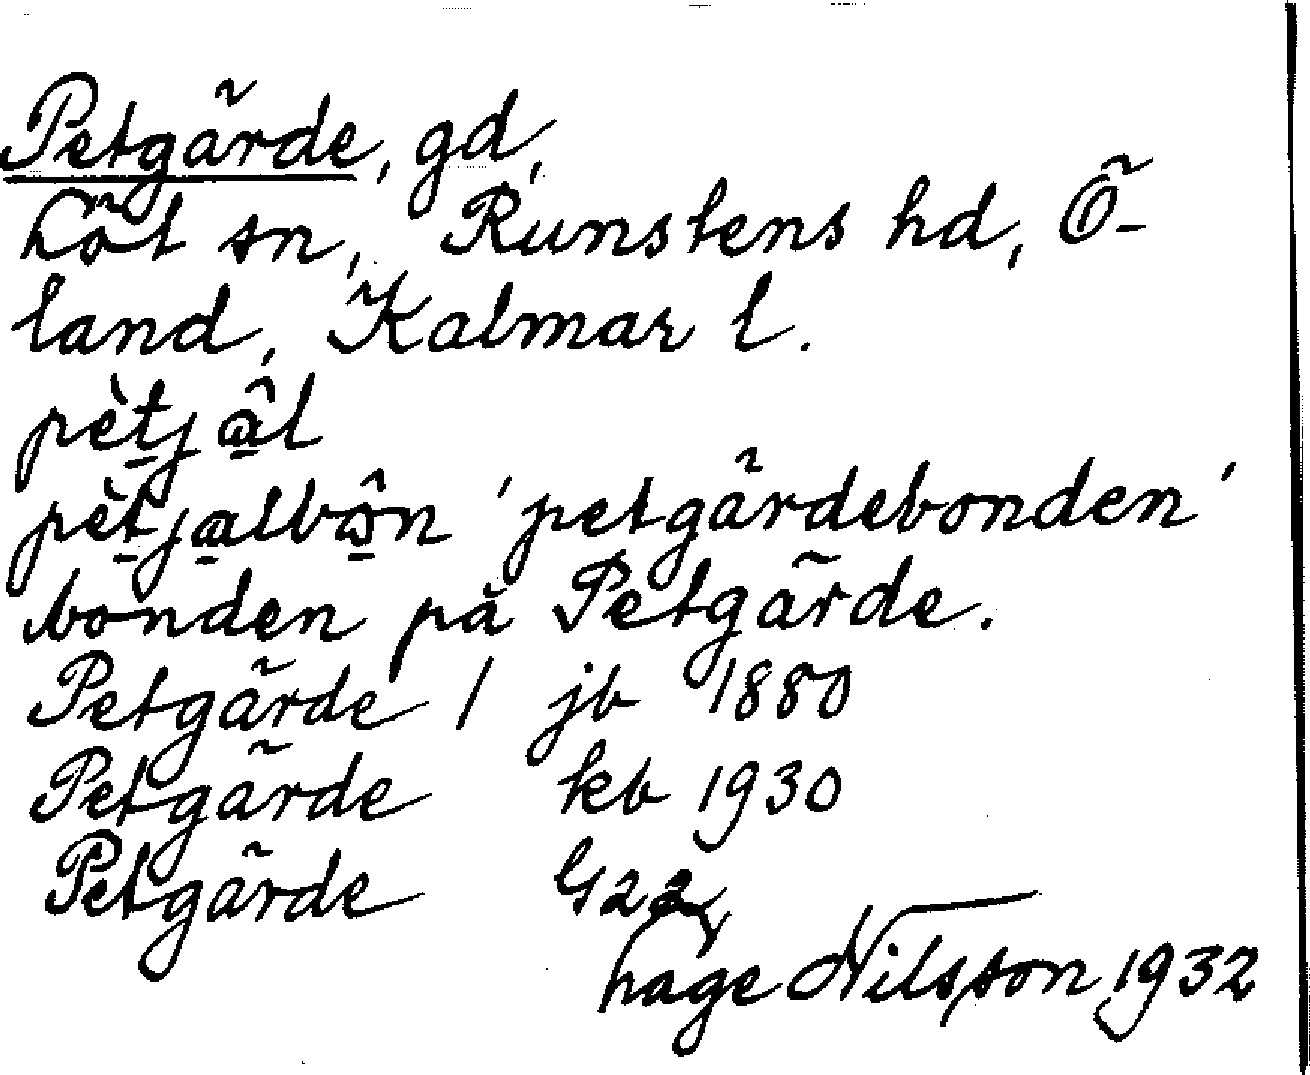 Petgärde, gd,
Löt sn, Runstens hd, Ö-
land, Kalmar l.
pèt̠jâ̠l
pèt̠ja̠lbɔ̠̂n 'petgärdebonden'
bonden på Petgärde.
Petgärde 1 jb 1880
Petgärde kb 1930
Petgärde
Hage Nilsson 1932